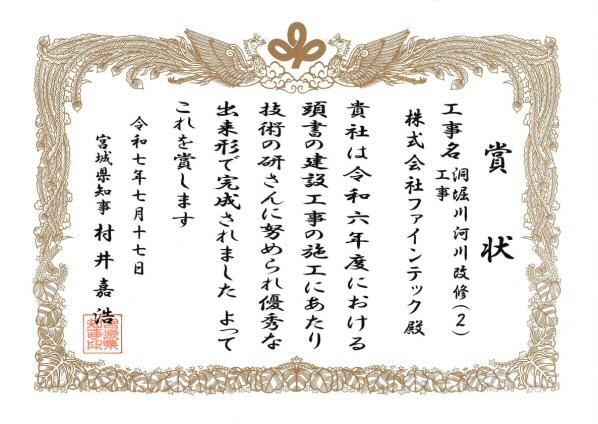 賞状
工事名 洞堀川河川改修(2)
工事
株式会社ファインテック 殿
貴社は令和六年度における
頭書の建設工事の施工にあたり
技術の研さんに努められ優秀な
出来形で完成されました よって
これを賞します
令和七年七月十七日
宮城県知事 村井嘉浩
宮城県
知事印